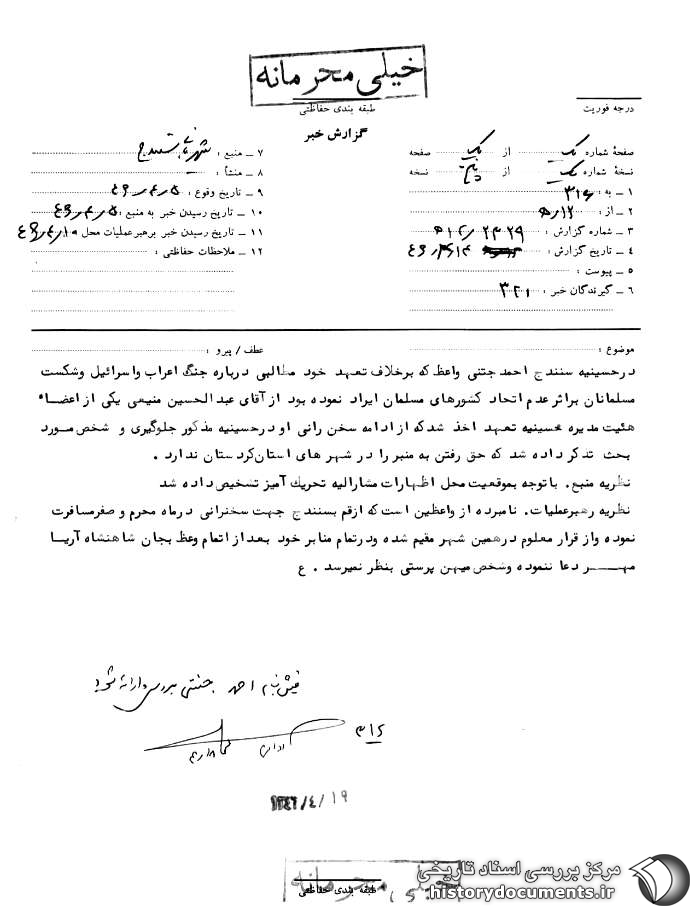 خیلی محرمانه
طبقه بندی حفاظتی
درجه فوریت
گزارش خبر
صفحهٔ شماره یک از یک صفحه
نسخهٔ شماره یک از پنج نسخه
۱ ـ به : ۳۱۶
۲ ـ از : ۱۲ﻫ
۳ ـ شماره گزارش : ۲۳۲۹/ﻫ۱۲
۴ ـ تاریخ گزارش :
۵ ـ پیوست :
۶ ـ گیرندگان خبر : ۳۲۱
۷ ـ منبع : شهربانی سنندج
۸ ـ منشأ :
۹ ـ تاریخ وقوع : ۴۶٫۴٫۵
۱۰ ـ تاریخ رسیدن خبر به منبع : ۴۶٫۴٫۵
۱۱ ـ تاریخ رسیدن خبر برهبرعملیات محل : ۴۶٫۴٫۱۰
۱۲ ـ ملاحظات حفاظتی :
موضوع :
عطف / پیرو :
درحسینیه سنندج احمد جنتی واعظ که برخلاف تعهد خود مطالبی درباره جنگ اعراب واسرائیل وشکست
مسلمانان براثر عدم اتحاد کشورهای مسلمان ایراد نموده بود از آقای عبدالحسین منیعی یکی از اعضاء
هئیت مدیره حسینیه تعهد اخذ شد که از ادامه سخن رانی او درحسینیه مذکور جلوگیری و شخص مورد
بحث تذکر داده شد که حق رفتن به منبر را در شهر های استان کردستان ندارد .
نظریه منبع. با توجه بموقعیت محل اظهارات مشارالیه تحریک آمیز تشخیص داده شد
نظریه رهبرعملیات. نامبرده از واعظین است که ازقم بسنندج جهت سخنرانی درماه محرم و صفرمسافرت
نموده واز قرار معلوم درهمین شهر مقیم شده ودرتمام منابر خود بعد از اتمام وعظ بجان شاهنشاه آریا
مهـــر دعا ننموده وشخص میهن پرستی بنظر نمیرسد . ع
فیش بنام احمد جنتی بررسی و ارائه شود
۳۱۶
۱۳۴۶/۴/۱۹
خیلی محرمانه
طبقه بندی حفاظتی
مرکز بررسی اسناد تاریخی
historydocuments.ir